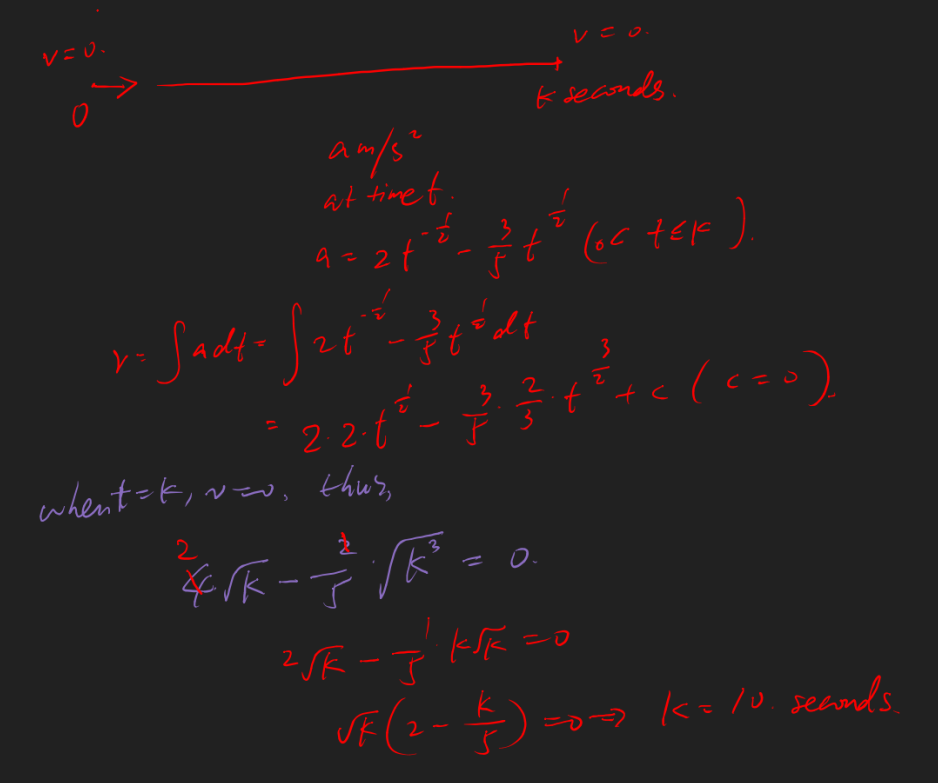 v=0.
v=0.
0
k seconds.
a m/s²
at time t.
a = 2t^{-1/2} - 3/5 t^{1/2} (0< t≤k).
v = ∫adt = ∫ 2t^{-1/2} - 3/5 t^{1/2} dt
= 2·2·t^{1/2} - 3/5 · 2/3 · t^{3/2} + c (c=0).
when t=k, v=0, thus,
2 1
4·√k - 2/5 · √k³ = 0.
2√k - 1/5 · k√k = 0
√k(2 - k/5) =0 ⇒ k=10. seconds.